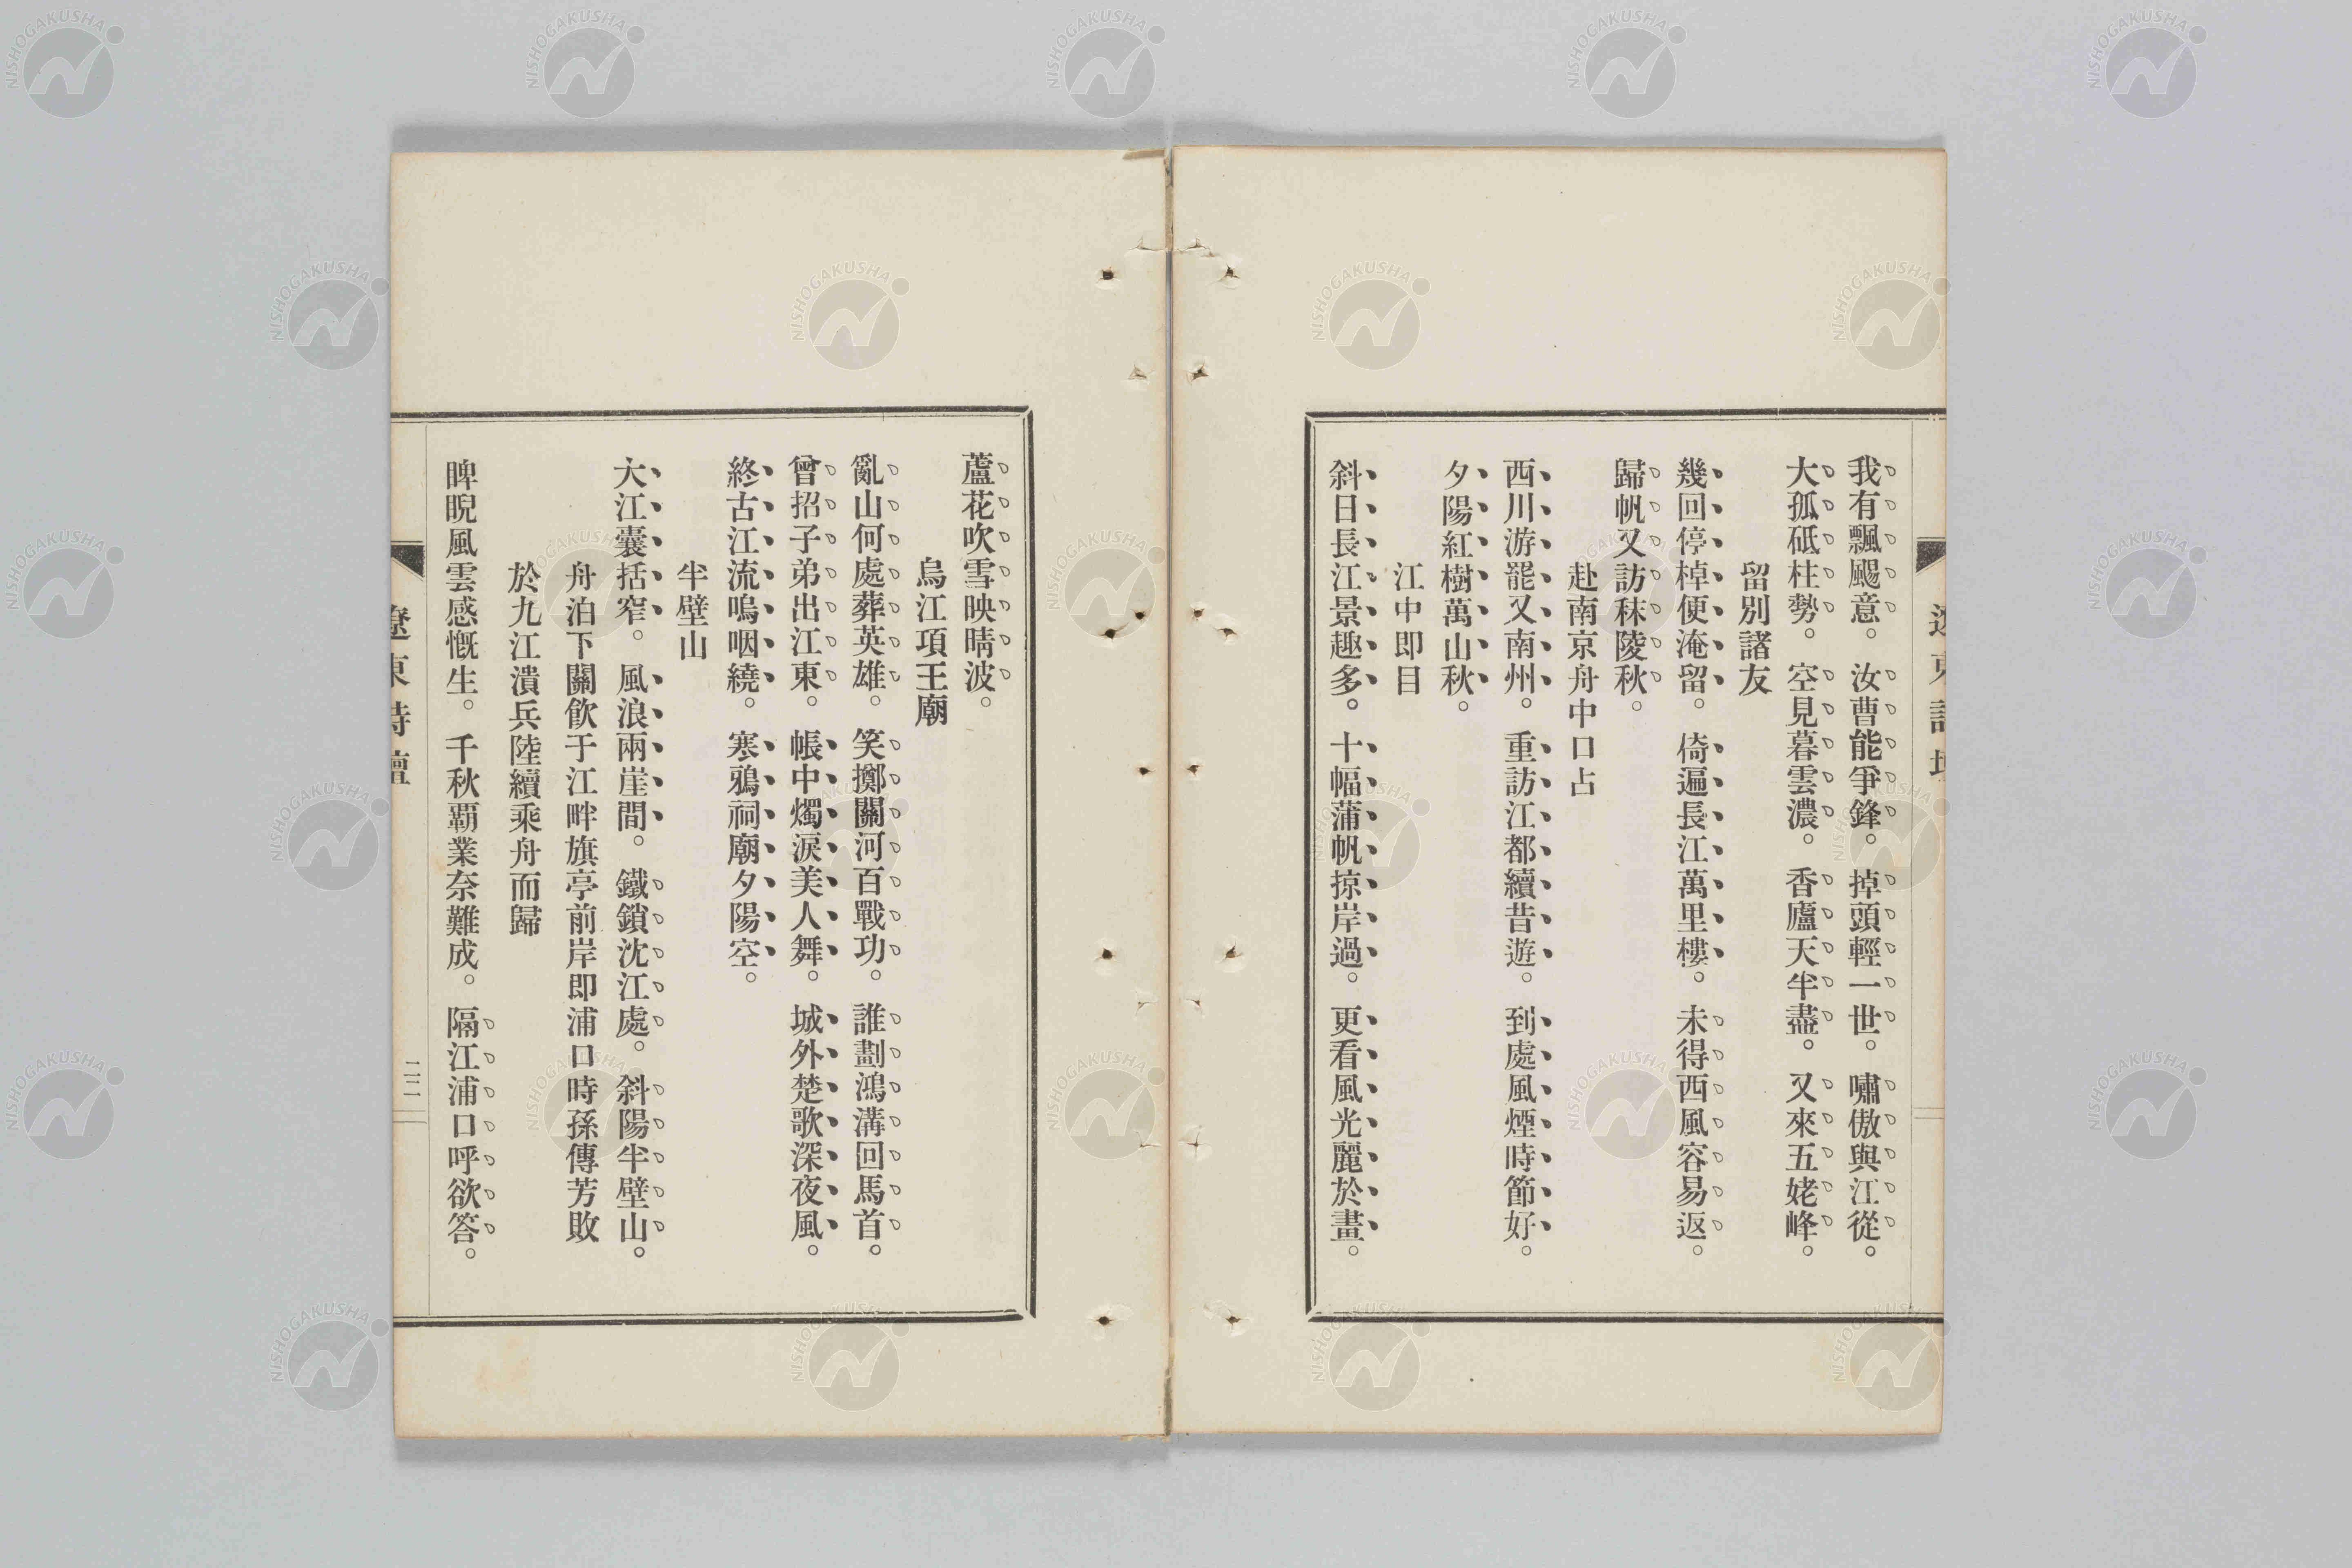 我有飄颺意。汝曹能爭鋒。掉頭輕一世。嘯傲與江從。
大孤砥柱勢。空見暮雲濃。香廬天半盡。又來五姥峰。
留別諸友
幾回停棹便淹留。倚遍長江萬里樓。未得西風容易返。
歸帆又訪秣陵秋。
赴南京舟中口占
西川游罷又南州。重訪江都續昔遊。到處風煙時節好。
夕陽紅樹萬山秋。
江中即目
斜日長江景趣多。十幅蒲帆掠岸過。更看風光麗於畫。
蘆花吹雪映晴波。
烏江項王廟
亂山何處葬英雄。笑擲關河百戰功。誰劃鴻溝回馬首。
曾招子弟出江東。帳中燭淚美人舞。城外楚歌深夜風。
終古江流嗚咽繞。寒鴉祠廟夕陽空。
半壁山
大江囊括窄。風浪兩崖間。鐵鎖沈江處。斜陽半壁山。
舟泊下關飲于江畔旗亭前岸即浦口時孫傳芳敗
於九江潰兵陸續乘舟而歸
睥睨風雲感慨生。千秋覇業奈難成。隔江浦口呼欲答。
遼東詩壇
二二
NISHOGAKUSHA